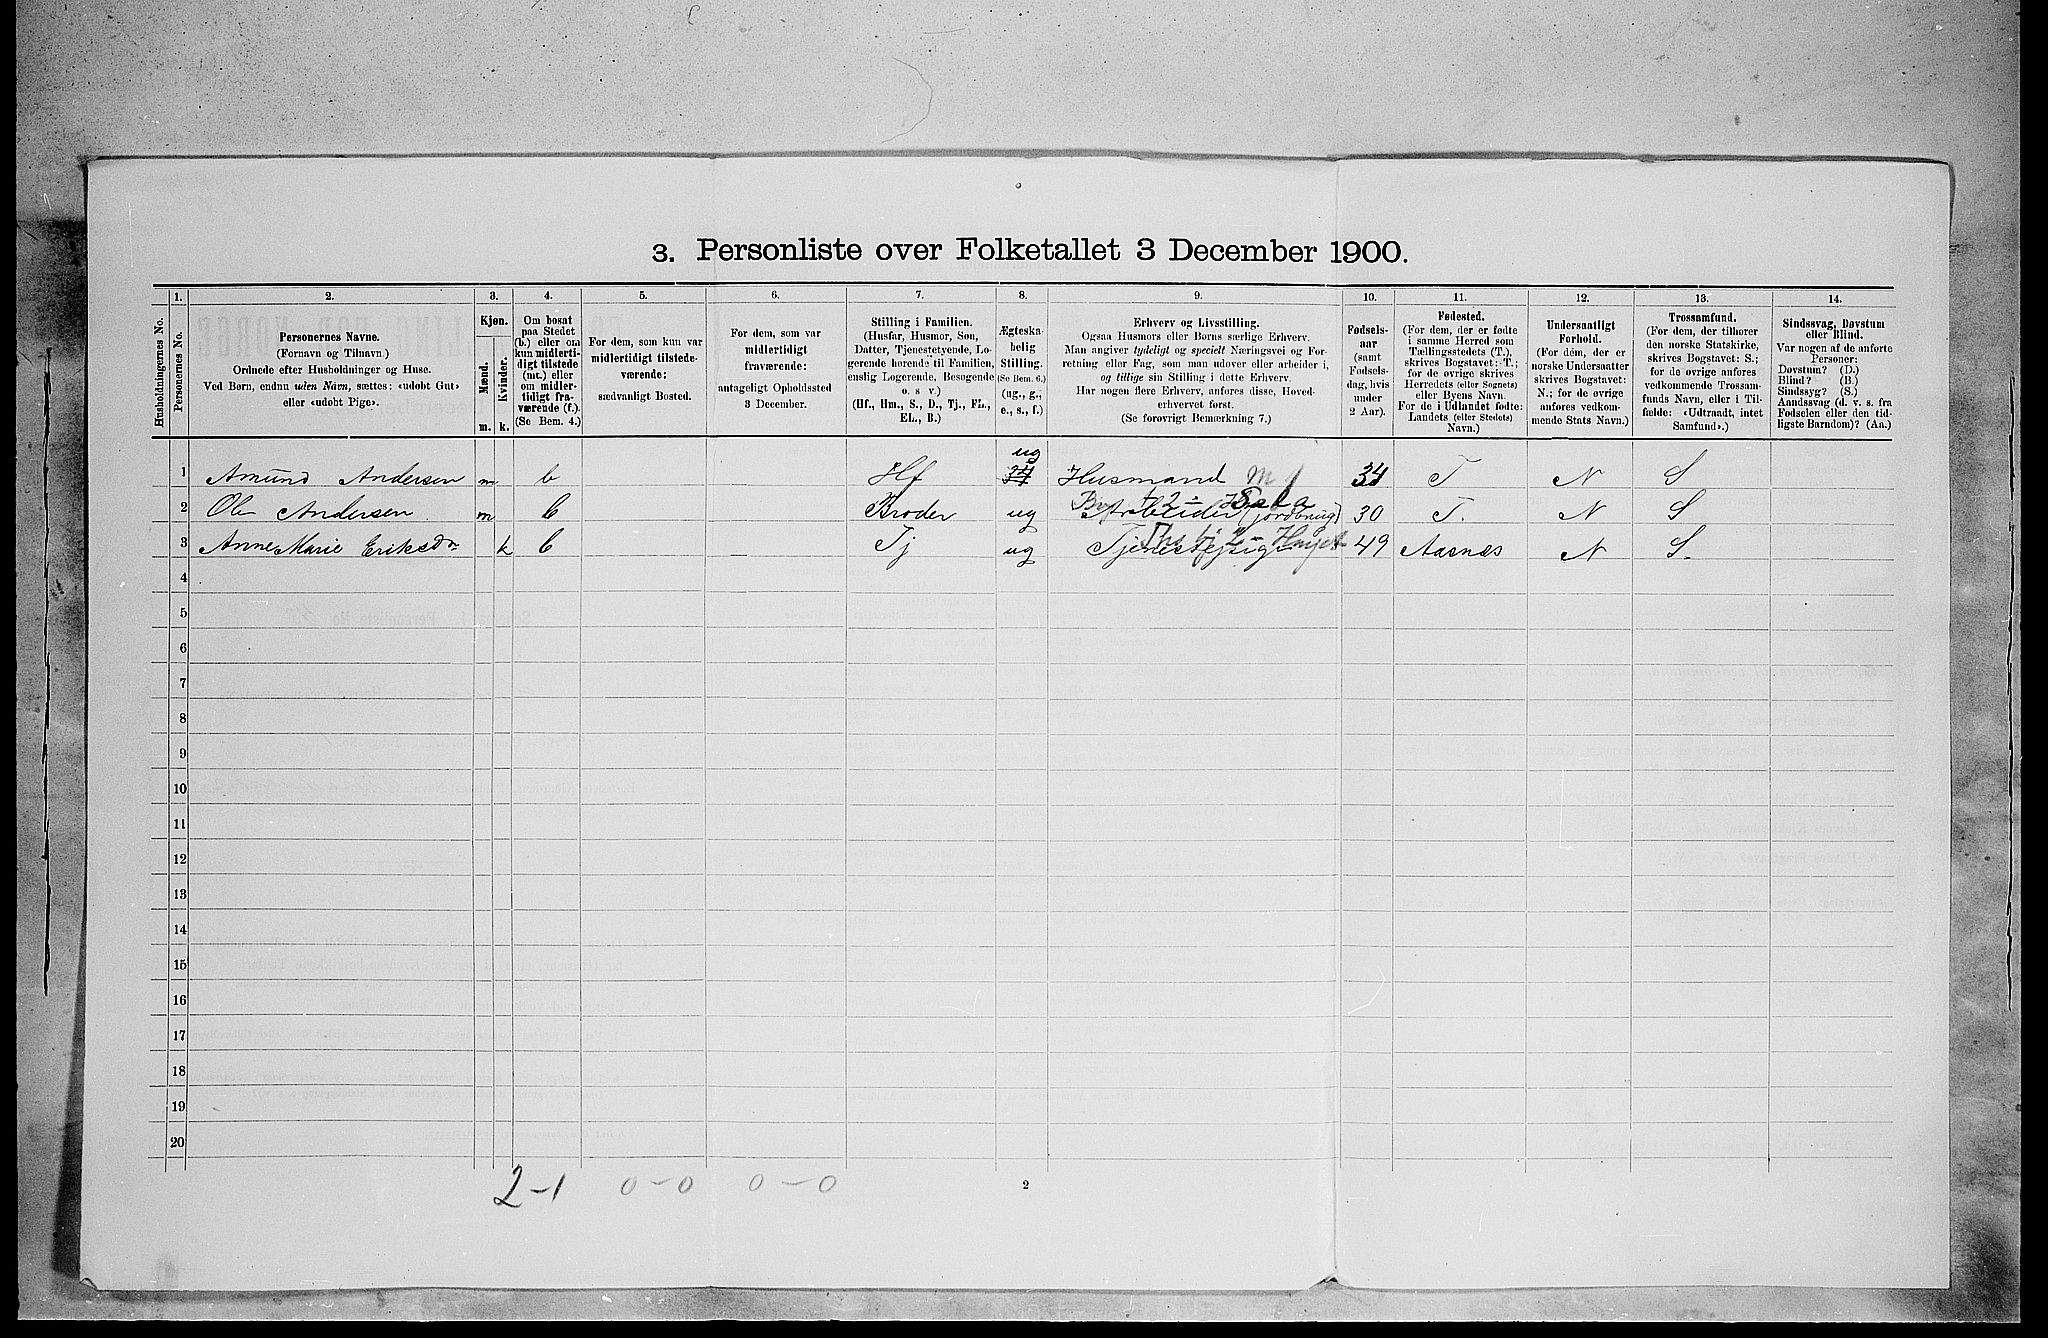 3. Personliste over Folketallet 3 December 1900.
Husholdningernes No.
1.
Personernes No.
2.
Personernes Navne.
(Fornavn og Tilnavn.)
Ordnede efter Husholdninger og Huse.
Ved Børn, endnu uden Navn, sættes: «udøbt Gut»
eller «udøbt Pige».
3.
Kjøn.
Mænd.
Kvinder.
m. k.
4.
Om bosat
paa Stedet
(b.) eller om
kun midlerti-
digt tilstede
(mt.) eller
om midler-
tidigt fra-
værende (f.).
(Se Bem. 4.)
5.
For dem, som kun var
midlertidigt tilstede-
værende:
sædvanligt Bosted.
6.
For dem, som var
midlertidigt
fraværende:
antageligt Opholdssted
3 December.
7.
Stilling i Familien.
(Husfar, Husmor, Søn,
Datter, Tjenestetyende, Lo-
gerende hørende til Familien,
enslig Logerende, Besøgende
o. s. v.)
(Hf., Hm., S., D., Tj., FL.,
EL., B.)
8.
Ægteska-
belig
Stilling.
(Se Bem. 6.)
(ug., g.,
e., s., f.)
9.
Erhverv og Livsstilling.
Ogsaa Husmors eller Børns særlige Erhverv.
Man angiver tydeligt og specielt Næringsvei og For-
retning eller Fag, som man udøver eller arbeider i,
og tillige sin Stilling i dette Erhverv.
Har nogen flere Erhverv, anføres disse, Hoved-
erhvervet først.
(Se forøvrigt Bemerkning 7.)
10.
Fødsels-
aar
(samt
Fødsels-
dag, hvis
under
2 Aar).
11.
Fødested.
(For dem, der er fødte
i samme Herred som
Tællingsstedets (T.),
skrives Bogstavet: T.;
for de øvrige skrives
Herredets (eller Sognets)
eller Byens Navn.
For de i Udlandet fødte:
Landets (eller Stedets)
Navn.)
12.
Undersaatligt
Forhold.
(For dem, der er
norske Undersaatter
skrives Bogstavet:
N.; for de øvrige
anføres vedkom-
mende Stats Navn.)
13.
Trossamfund.
(For dem, der tilhører
den norske Statskirke,
skrives Bogstavet: S.;
for de øvrige anføres
vedkommende Trossam-
funds Navn, eller i Til-
fælde: «Udtraadt, intet
Samfund».)
14.
Sindssvag, Døvstum
eller Blind.
Var nogen af de anførte
Personer:
Døvstum? (D.)
Blind? (B.)
Sindssyg? (S.)
Aandssvag (d. v. s. fra
Fødselen eller den tid-
ligste Barndom)? (Aa.)
1 Amund Andersen m b Hf ug Husmand 34 T N S
2 Ole Andersen m b Broder ug Arbeider (jordbrug) 30 T. N S
3 Anne Marie Eriksdn k b Tj ug Tjenestepige 49 Aasnæs N S.
4
5
6
7
8
9
10
11
12
13
14
15
16
17
18
19
20
2-1 0-0 0-0
2